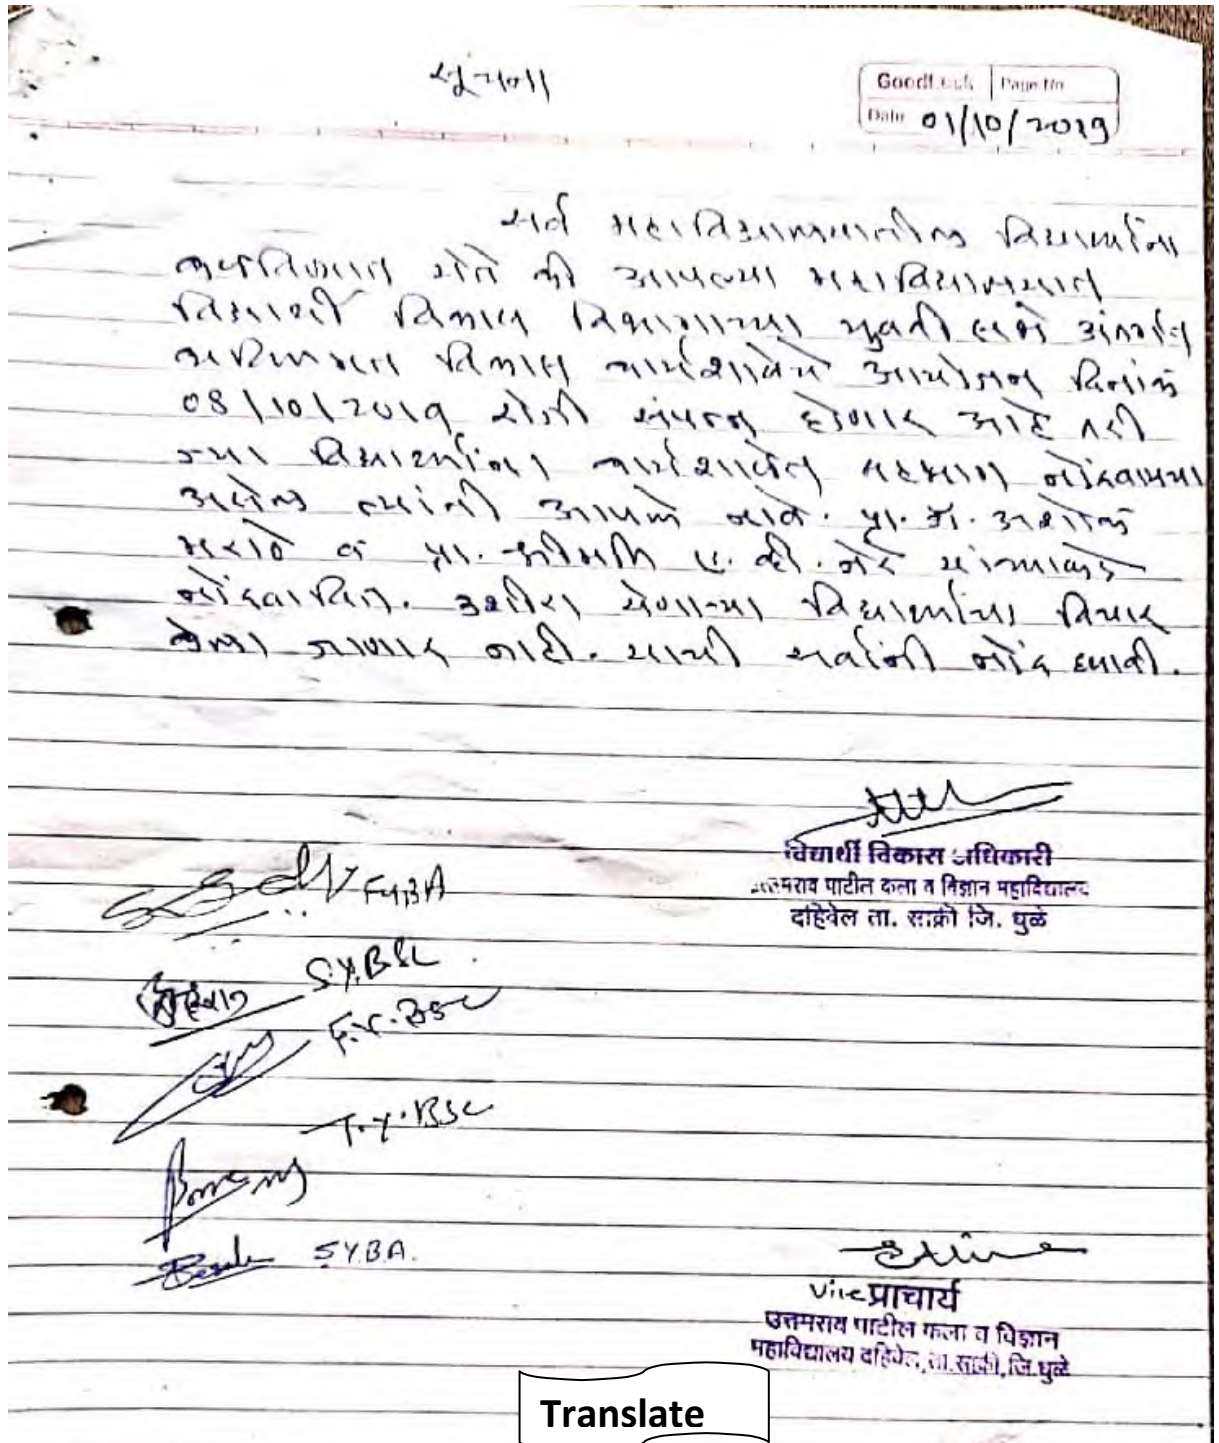 सूचना
GoodLuck Page No
Date 01/10/2019
सर्व महाविद्यालयातील विद्यार्थ्यांना
कळविण्यात येते की आपल्या महाविद्यालयात
विद्यार्थी विकास विभागाच्या युवती सभे अंतर्गत
व्यक्तिमत्व विकास कार्यशाळेचे आयोजन दिनांक
08/10/2019 रोजी संपन्न होणार आहे तरी
ज्या विद्यार्थ्यांना कार्यशाळेत सहभाग नोंदवायचा
असेल त्यांनी आपले नावे प्रा. डॉ. अशोक
मराठे व प्रा. श्रीमती यांच्याकडे
नोंदवावित. उशीरा येणाऱ्या विद्यार्थ्यांचा विचार
केला जाणार नाही. याची सर्वांनी नोंद घ्यावी.
विद्यार्थी विकास अधिकारी
उत्तमराव पाटील कला व विज्ञान महाविद्यालय
दहिवेल ता. साक्री जि. धुळे
FYBA
S.Y.BSc.
F.Y.BSc
T.Y.BSc
S.Y.B.A.
Vice प्राचार्य
उत्तमराव पाटील कला व विज्ञान
महाविद्यालय दहिवेल, ता. साक्री, जि. धुळे
Translate